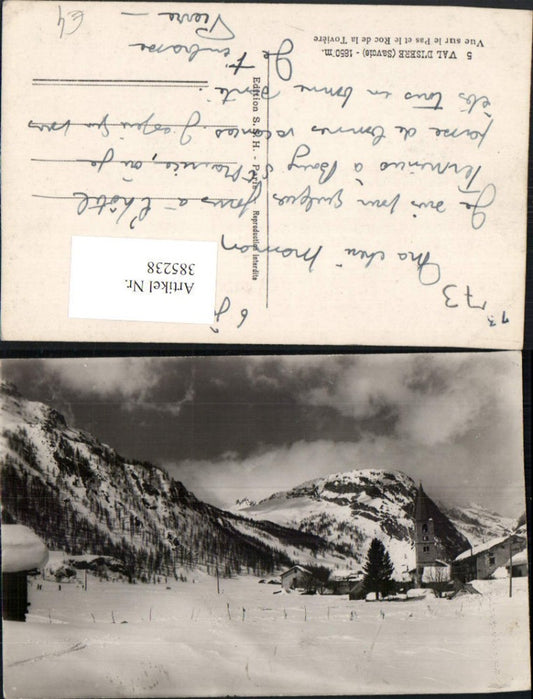 5 VAL D'ISERE (Savoie) - 1850 m.
Vue sur le Pas et le Roc de la Tovière
Edition S. S. H. - Paris Reproduction interdite
73
Ma chère maman
Je suis pour quelques jours à l'hôtel
Terminus à Bourg St Maurice, où je
passe de bonnes vacances. J'espère que vous
êtes tous en bonne santé.
Je t'embrasse
Pierre
Artikel Nr.
385238